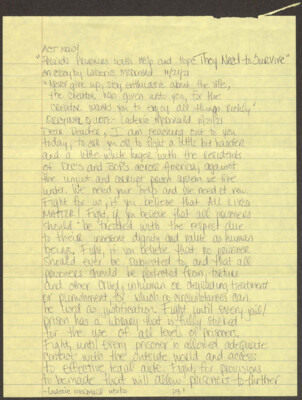 Act now!
"Provide Prisoners with Help and Hope They Need to Survive"
an essay by Ladonis McDonald 11/21/21
"Never give up, stay enthusiastic about the life,
the Creator has given unto you, for the
Creator wants you to enjoy all things richly."
Dear Reader, I am reaching out to you
today, to ask you all to fight a little bit harder
and a little while longer with the residents
of DOC's and BOP's across America, against
the unjust and archaic prison system we live
under. We need your help and we need it now.
Fight for us, if you believe that ALL LIVES
MATTER! Fight, if you believe that all prisoners
should be treated with the respect due
to their inherent dignity and value as human
being. Fight, if you believe that no prisoner
should ever be subjected to, and that all
prisoners should be protected from, torture
and other cruel, inhuman or degrading treatment
or punishment, for which no circumstances can
be used as justification. Fight until every jail/
prison has a library that is fully stocked
for the use of all levels of prisoners.
Fight, until every prisoner is allowed adequate
contact with the outside world and access
to effective legal aide. Fight, for provisions
to be made that will allow prisoners to further
pg.1